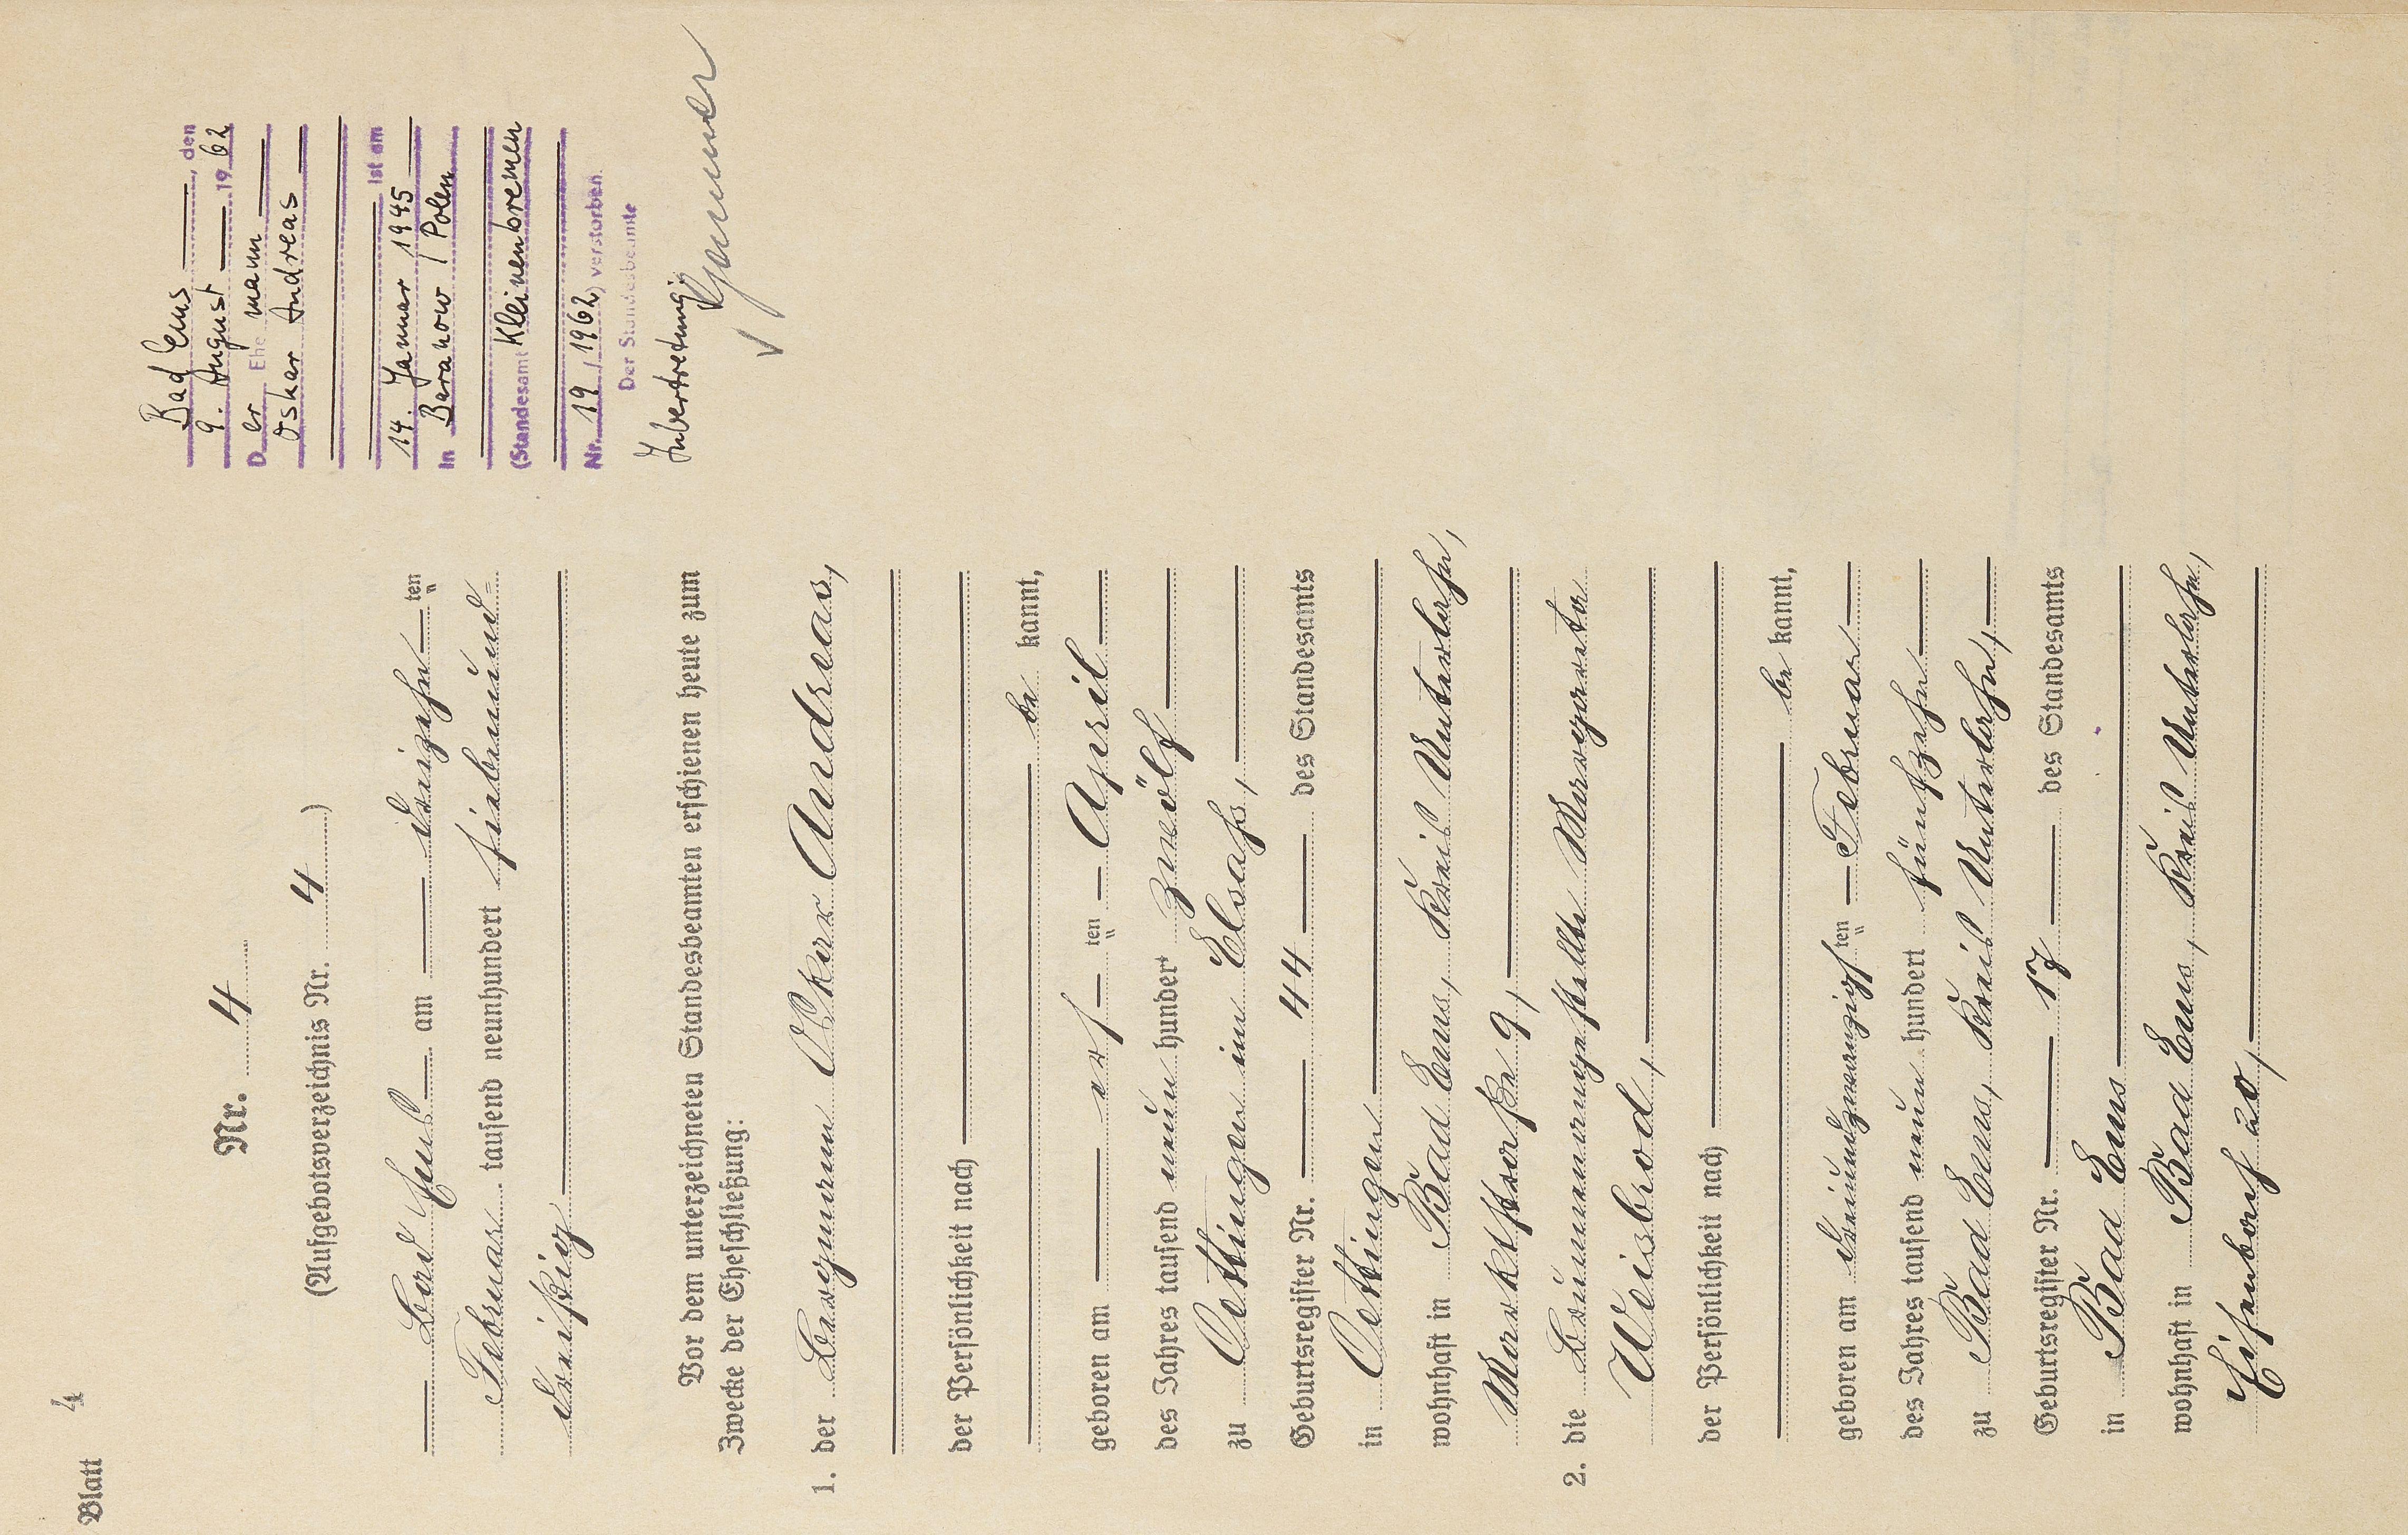 Blatt 4
Nr. 4
(Aufgebotsverzeichnis Nr. 4)
Bad Ems am dreizehnten
Februar tausend neunhundert siebenund=
dreißig
Vor dem unterzeichneten Standesbeamten erschienen heute zum
Zwecke der Eheschließung:
1. der Bergmann Oskar Andreas,
der Persönlichkeit nach
be kannt,
geboren am acht ten April
des Jahres tausend neun hundert zwölf
zu Oettingen im Elsass,
Geburtsregister Nr. 44 des Standesamts
in Oettingen
wohnhaft in Bad Ems, Kreis Unterlahn,
Marktstraße 9,
2. die Margareta
Weisbrod,
der Persönlichkeit nach
be kannt,
geboren am dreiundzwanzigsten Februar
des Jahres tausend neun hundert fünfzehn
zu Bad Ems, Kreis Unterlahn,
Geburtsregister Nr. 17 des Standesamts
in Bad Ems
wohnhaft in Bad Ems, Kreis Unterlahn,
Bad Ems, den
9. August 1962
Der Ehemann
Oskar Andreas
ist am
14. Januar 1945
in Baranow / Polen
(Standesamt Kleinenbremen
Nr. 19 / 1962) verstorben.
Der Standesbeamte
In Vertretung: